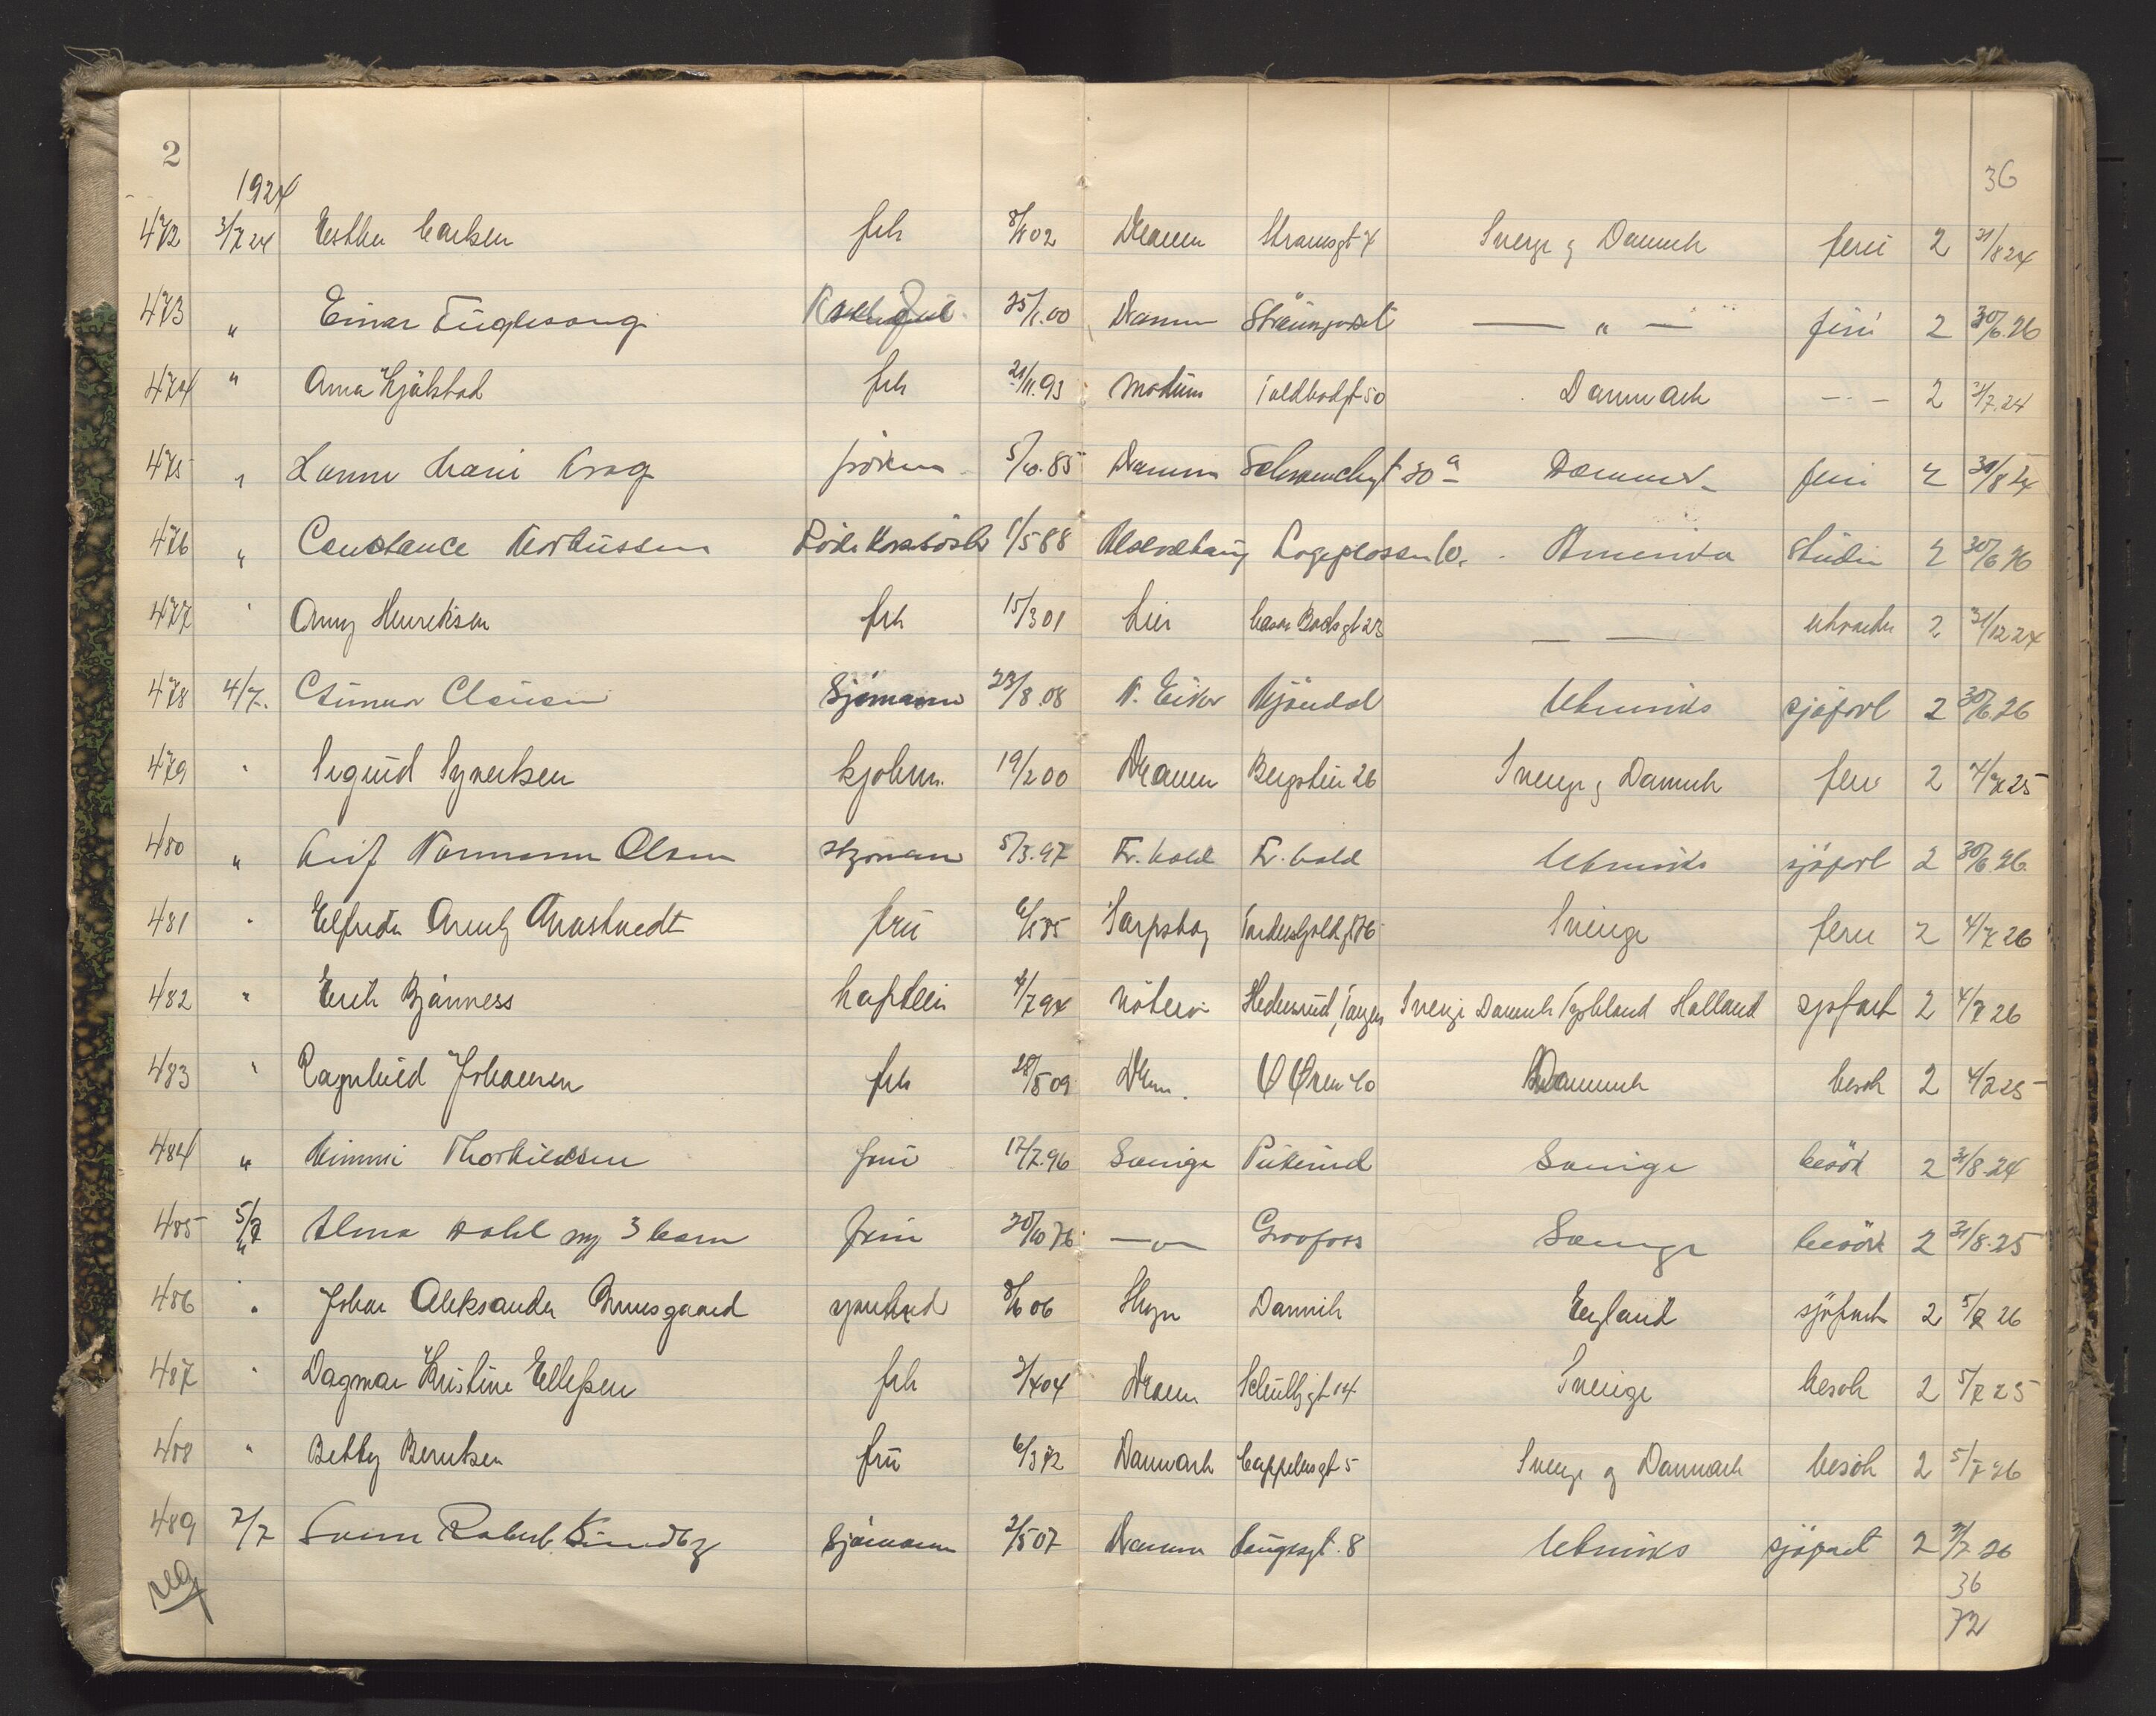 2
36
1924
472 3/7 24 Esther Carlsen frk 8/1 02 Dramen Strømsgt 4 Sverge og Danmrk ferie 2 31/8 24
473 " Einar Fuglesang 25/1.00 Dramm — " — ferie 2 30/6.26
474 " Anna Gjølstad frk 21/11.93 Modum Toldbodgt 50 Danmark - - - 2 31/7.24
475 " Marie Krag frøken 5/10.85 Dramm Schwenckgt 30 a Danmrk ferie 2 30/8 24
476 " Constance Markussen Røde Korssøster 1/5 88 Logeplassen 10. Amerika Studie 2 30/6 26
477 " Anny Henriksen frk 15/3 01 Lier 23 — — utvandr 2 31/12 24
478 4/7. Gunnar Clausen Sjømann 23/8.08 N. Eiker Mjøndal Utenriks sjøfart 2 30/6.26
479 " Sigurd Syvertsen kjøbm. 19/2 00 Dramen Bergstien 26 Sverge og Danmrk ferie 2 4/7 25
480 " Leif Normann Olsen styrmann 5/3.97 Fr. hald Fr. hald Utenriks sjøfart 2 30/6.26.
481 " Elfrida frü 6/5 85 Sarpsborg Tordenskjoldsgt 76 Sverige ferie 2 4/7 26
482 " Erik Bjønness kaptein 4/7 94 Nøterø Hedensrud, Tangen Sverige Danmrk Tyskland Holland sjøfart 2 4/7 26
483 " Ragnhild Johansen frk 28/8 09 Drm. Ø Øren 40 Danmrk besøk 2 4/7 25
484 " Mimmi Thorkildsen frue 17/7.96 Sverige Pukerud Sverige besøk 2 31/8.24
485 5/7 " Alma Dahl og 3 barn frue 30/10 76 — " — Grovfoss Sverige besøk 2 31/8.25
486 " Johan Aleksander Bruusgaard 8/6 06 Skger Dannvik England sjøfart 2 5/7 26
487 " Dagmar Kristine Ellefsen frk 3/4 04 Dramen Schultzgt 14 Sverige besøk 2 5/7 25
488 " Betty Berntsen frü 6/3 72 Danmark Cappelensgt 5 Sverge og Danmark besøk 2 5/7 26
489 7/7 Robert Lindbg Sjømann 2/5 07 Dramm Haugesgt. 8 Utenriks sjøfart 2 7/7 26
36
72